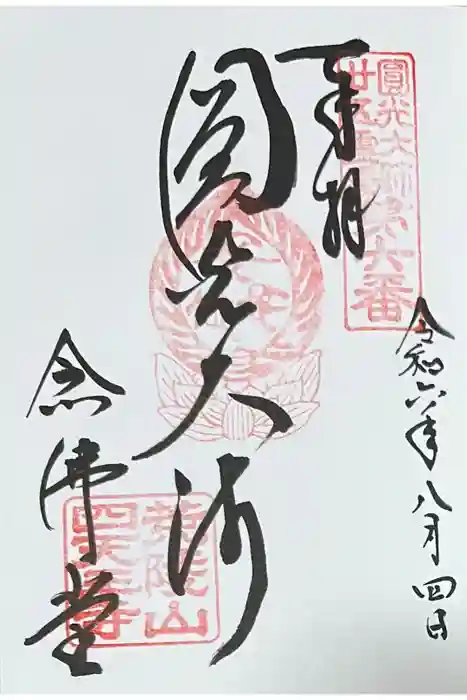 奉拝
圓光大師
廿五霊場第六番
令和六年八月四日
圓光大师
念佛堂
荒陵山
四天王寺